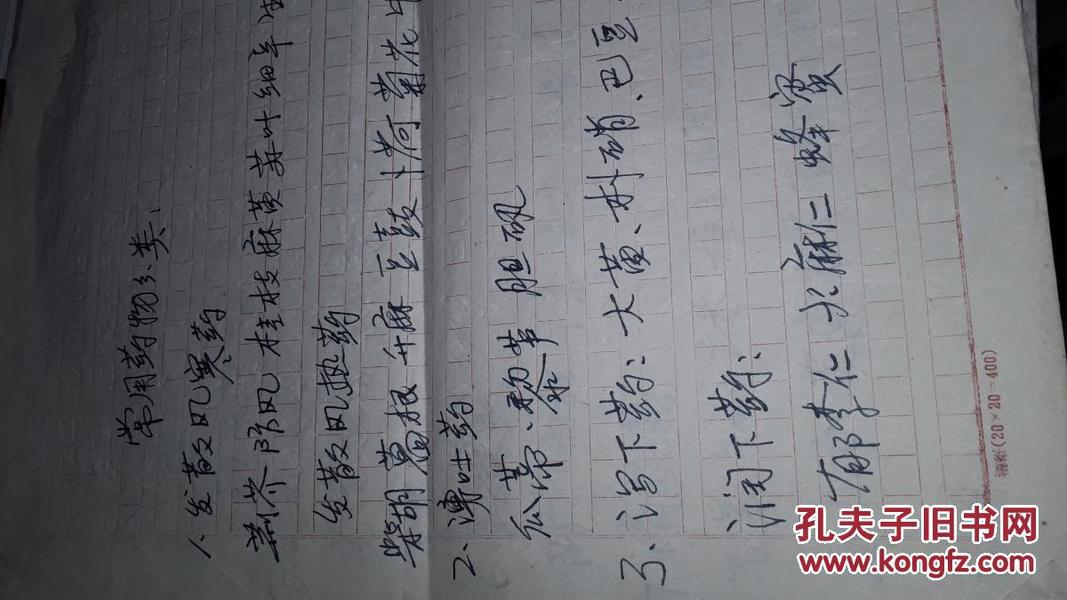 常用药物分类:
1、发散风寒药
荆芥 防风 桂枝 麻黄 苏叶 细辛
发散风热药
柴胡 葛根 升麻 豆鼓 卜荷 菊花
2、涌吐药
瓜蒂、黎芦 胆矾
3、泻下药: 大黄、朴硝、巴豆
润下药:
郁李仁 火麻仁 蜂蜜
稿纸(20×20=400)
孔夫子旧书网
www.kongfz.com